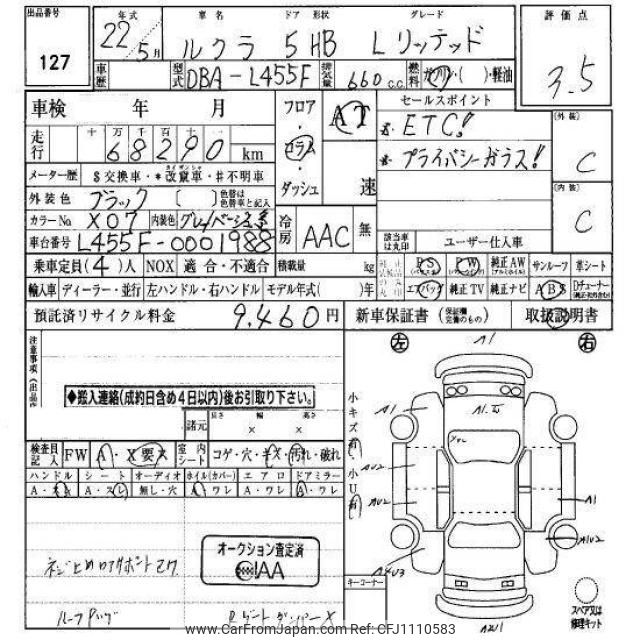 出品番号 年式 車名 ドア 形状 グレード 評価点
127 22 5月 ルクラ 5 HB L リッテッド 3.5
車歴 型式 DBA-L455F 排気量 660 c.c. 燃料 ガソリン・( )・軽油
車検 年 月 フロア・コラム・ダッシュ AT 速 セールスポイント
ETC!
プライバシーガラス!
[外装] C
[内装] C
走行 十 万 千 百 十 一
68290 km
メーター歴 $交換車・*改竄車・#不明車
外装色 ブラック [ ] 色替は色替車と記入
カラーNo X07 内装色 グレー/ベージュ系 冷房 AAC 無
車台番号 L455F-0001988
該当車は丸印 ユーザー仕入車
乗車定員(4)人 NOX 適合・不適合 積載量 kg PS PW 純正AW サンルーフ 革シート
輸入車 ディーラー・並行 左ハンドル・右ハンドル モデル年式( )年 エアバッグ 純正TV 純正ナビ ABS Dチューナー
預託済リサイクル料金 9,460円 新車保証書 (保証欄完備のもの) 取扱説明書
注意事項(出品店
◆搬入連絡(成約日含め4日以内)後お引取り下さい。
諸元 長さ 幅 高さ
× ×
検査員記入 FW A・X要ス 室内シート コゲ・穴・キズ・汚れ・破れ
ハンドル シート オーディオ ホイル(カバー) エアロ ドアミラー
A・スレ A・スレ 無し・穴 A・ワレ A・ワレ A・ワレ
オークション査定済
JAA
ルーフ
Rゲートダンパー×
左 右
A1
A1 A1.2
小キズ有
小U有
AU2
AU2 A1
A1U2
AXU3
A2U1
キーコーナー
スペア又は修理キット
www.CarFromJapan.com Ref: CFJ1110583